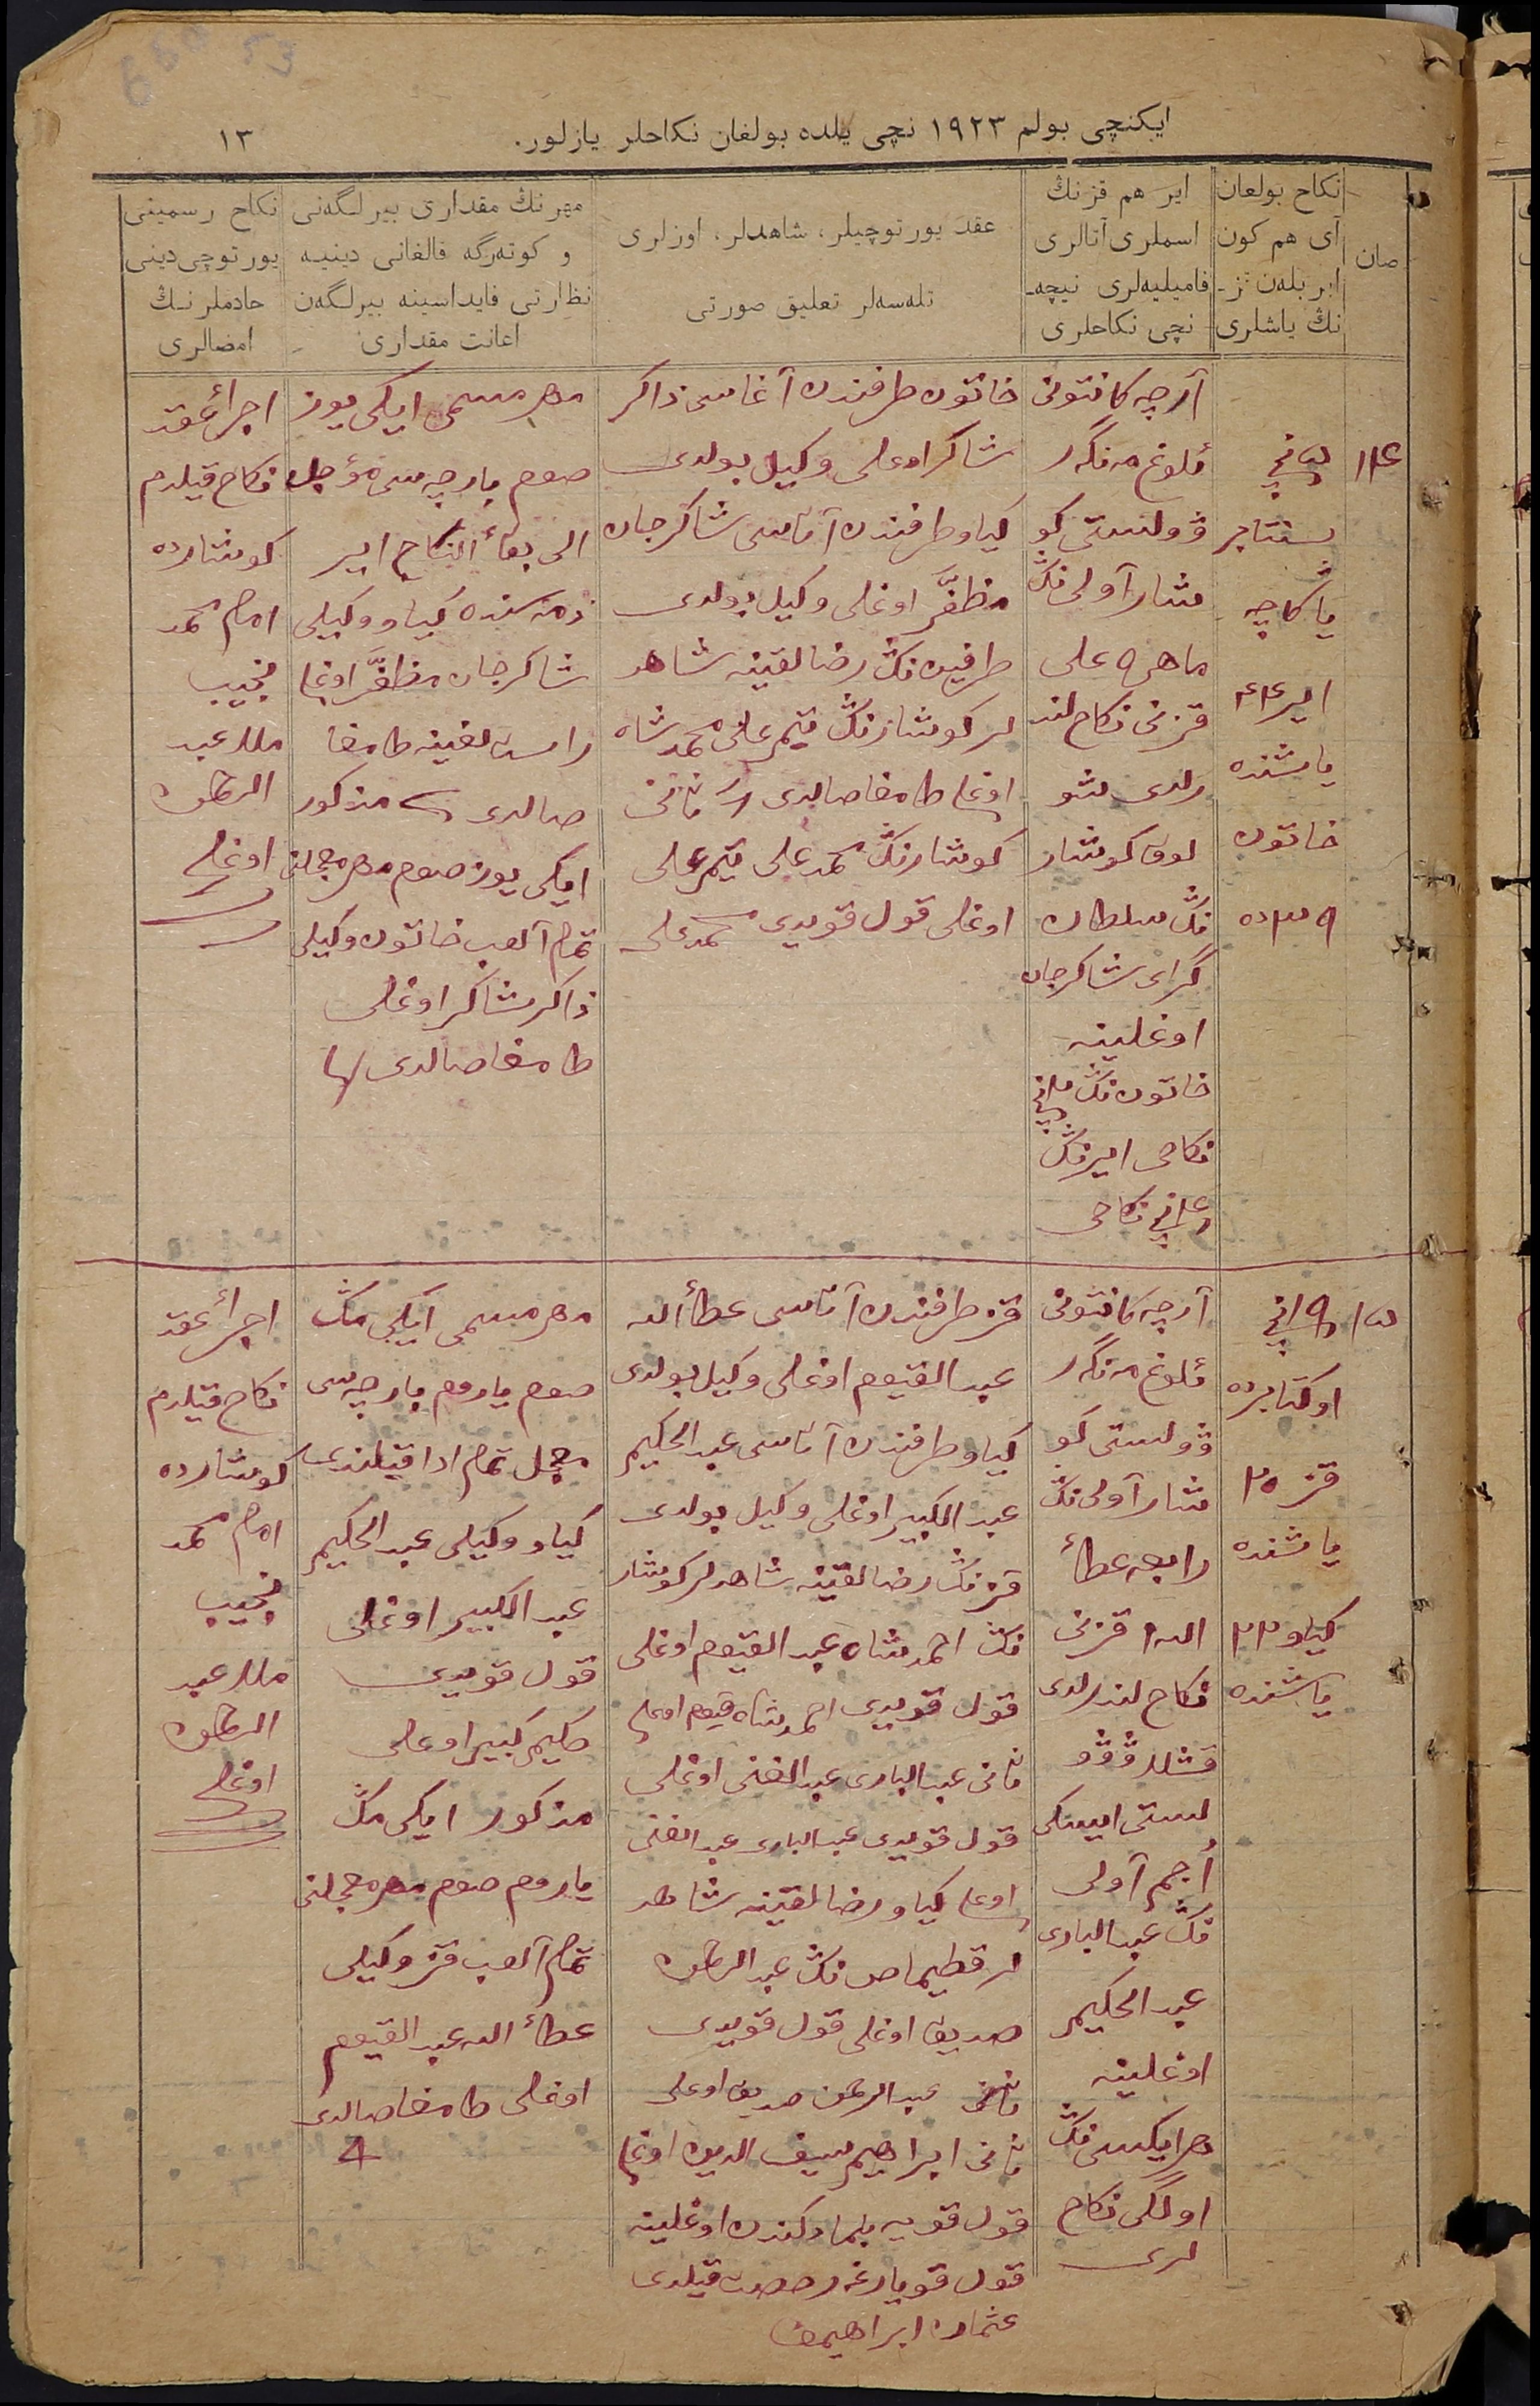 ایکنچی بولم ١٩٢٣ نچی یلده بولغان نکاحلر یازلور.
١٣
صان
نکاح بولغان
آی هم کون
ایر بلەن قز-
نڭ یاشلری
ایر هم قزنڭ
اسملری آتالری
فامیلیەلری نیچە-
نچی نکاحلری
عقد یورتوچیلر، شاهدلر، اوزلری
تلەسەلر تعلیق صورتی
مهرنڭ مقداری بیرلگەنی
و کوتەرگە قالغانی دینیه
نظارتی فایداسینه بیرلگەن
اعانت مقداری
نکاح رسمینی
یورتوچی دینی
خادملرنڭ
امضالری
١٤
٥نچی
سنتابر
یاکاچه
ایر ٤٤
یاشنده
خاتون
٣٩ده
آرچه کانتونی
ئلوغ منگەر
ۋولستی کو
شار آولی نڭ
ماهره علی
قزنی نکاح لند
رلدی شو
لوق کوشار
نڭ سلطان
گرای شاکرجان
اوغلینه
خاتون نڭ
نکاحی ایرنڭ
نکاحی
خاتون طرفندن آغاسی ذاکر
شاکر اوغلی وکیل بولدی
کیاو طرفندن آتاسی شاکرجان
مظفر اوغلی وکیل بولدی
طرفین نڭ رضالقینه شاهد
لر کوشارنڭ قیم علی محمدشاه
اوغلی طامغا صالدی ثانی
کوشارنڭ محمدعلی قیم علی
اوغلی قول قویدی محمدعلی
مهر مسمی ایکی یوز
صوم بارچه سی مؤجل
الی بقاء النکاح ایر
ذمه سنده کیاو وکیلی
شاکرجان مظفر اوغلی
راست لغینه طامغا
صالدی مذکور
ایکی یوز صوم مهر معجلنی
تمام آلوب خاتون وکیلی
ذاکر شاکر اوغلی
طامغا صالدی
اجراء عقد
نکاح قیلدم
کوشارده
امام محمد
نجیب
ملا عبد
الرحمن
اوغلی
١٥
١٩نچی
اوکتابرده
قز ٢٥
یاشنده
کیاو ٢٣
یاشنده
آرچه کانتونی
ئلوغ منگەر
ۋولستی کو
شار آولی نڭ
رابعه عطاء
الله قزنی
نکاح لندرلدی
قشلاۋ ۋو
لستی ایسکی
اُجم آولی
نڭ عبدالباری
عبدالحکیم
اوغلینه
هر ایکسی نڭ
اولگی نکاح
لری
قز طرفندن آتاسی عطاء الله
عبدالقیوم اوغلی وکیل بولدی
کیاو طرفندن آتاسی عبدالحکیم
عبدالکبیر اوغلی وکیل بولدی
قزنڭ رضالقینه شاهدلر کوشار
نڭ احمدشاه عبدالقیوم اوغلی
قول قویدی احمدشاه قیوم اوغلی
ثانی عبدالباری عبدالغنی اوغلی
قول قویدی عبدالباری عبدالغنی
اوغلی کیاو رضالقینه شاهد
لر قطیماص نڭ عبدالرحمن
صدیق اوغلی قول قویدی
عبدالرحمن صدیق اوغلی
ثانی ابراهیم سیف الدین اوغلی
قول قویه بلمادکندن اوغلینه
قول قویارغه رخصت قیلدی
عثمان ابراهیمف
مهر مسمی ایکی مڭ
صوم یاروم بارچه سی
معجل تمام ادا قیلندی
کیاو وکیلی عبدالحکیم
عبدالکبیر اوغلی
قول قویدی
حکیم کبیر اوغلی
مذکور ایکی مڭ
یاروم صوم مهر معجلنی
تمام آلوب قز وکیلی
عطاء الله عبدالقیوم
اوغلی طامغا صالدی
اجراء عقد
نکاح قیلدم
کوشارده
امام محمد
نجیب
ملا عبد
الرحمن
اوغلی